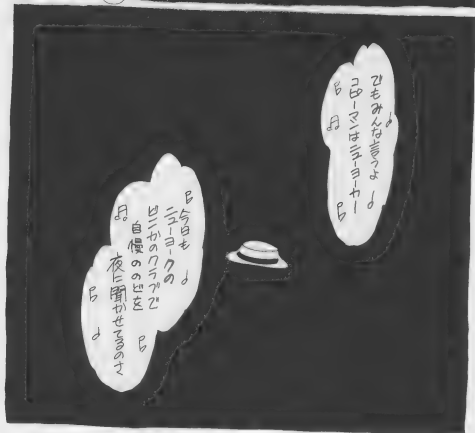 でもみんな言うよ
コピーマンはニューヨーカー
今日も
ニューヨークの
どこかのクラブで
自慢ののどを
夜に聞かせてるのさ